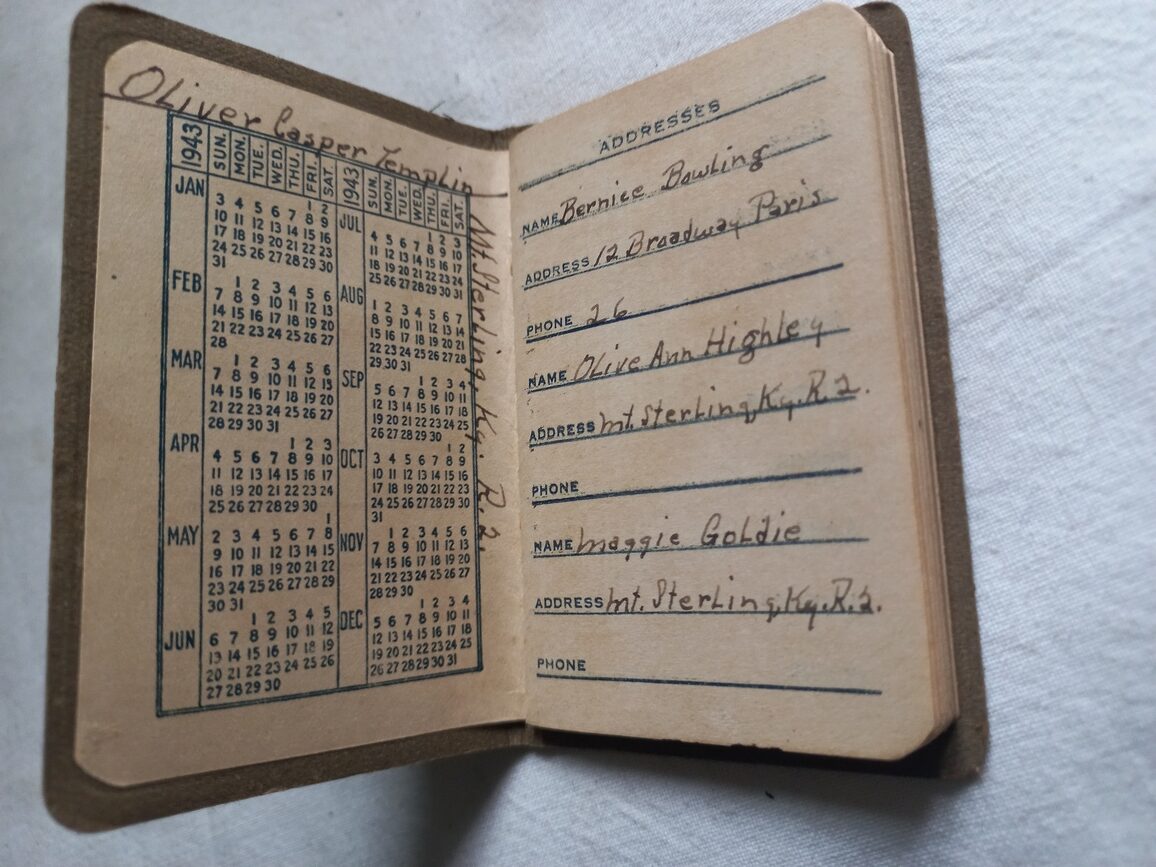 Oliver Casper Templin
1943 SUN. MON. TUE. WED. THU. FRI. SAT.
JAN
1 2
3 4 5 6 7 8 9
10 11 12 13 14 15 16
17 18 19 20 21 22 23
24 25 26 27 28 29 30
31
FEB
1 2 3 4 5 6
7 8 9 10 11 12 13
14 15 16 17 18 19 20
21 22 23 24 25 26 27
28
MAR
1 2 3 4 5 6
7 8 9 10 11 12 13
14 15 16 17 18 19 20
21 22 23 24 25 26 27
28 29 30 31
APR
1 2 3
4 5 6 7 8 9 10
11 12 13 14 15 16 17
18 19 20 21 22 23 24
25 26 27 28 29 30
MAY
1
2 3 4 5 6 7 8
9 10 11 12 13 14 15
16 17 18 19 20 21 22
23 24 25 26 27 28 29
30 31
JUN
1 2 3 4 5
6 7 8 9 10 11 12
13 14 15 16 17 18 19
20 21 22 23 24 25 26
27 28 29 30
1943 SUN. MON. TUE. WED. THU. FRI. SAT.
JUL
1 2 3
4 5 6 7 8 9 10
11 12 13 14 15 16 17
18 19 20 21 22 23 24
25 26 27 28 29 30 31
AUG
1 2 3 4 5 6 7
8 9 10 11 12 13 14
15 16 17 18 19 20 21
22 23 24 25 26 27 28
29 30 31
SEP
1 2 3 4
5 6 7 8 9 10 11
12 13 14 15 16 17 18
19 20 21 22 23 24 25
26 27 28 29 30
OCT
1 2
3 4 5 6 7 8 9
10 11 12 13 14 15 16
17 18 19 20 21 22 23
24 25 26 27 28 29 30
31
NOV
1 2 3 4 5 6
7 8 9 10 11 12 13
14 15 16 17 18 19 20
21 22 23 24 25 26 27
28 29 30
DEC
1 2 3 4
5 6 7 8 9 10 11
12 13 14 15 16 17 18
19 20 21 22 23 24 25
26 27 28 29 30 31
Mt. Sterling, Ky. R. 2.
ADDRESSES
NAME Bernice Bowling
ADDRESS 12 Broadway Paris
PHONE 26
NAME Olive Ann Highley
ADDRESS Mt. Sterling, Ky. R. 2.
PHONE
NAME Maggie Goldie
ADDRESS Mt. Sterling, Ky. R. 2.
PHONE